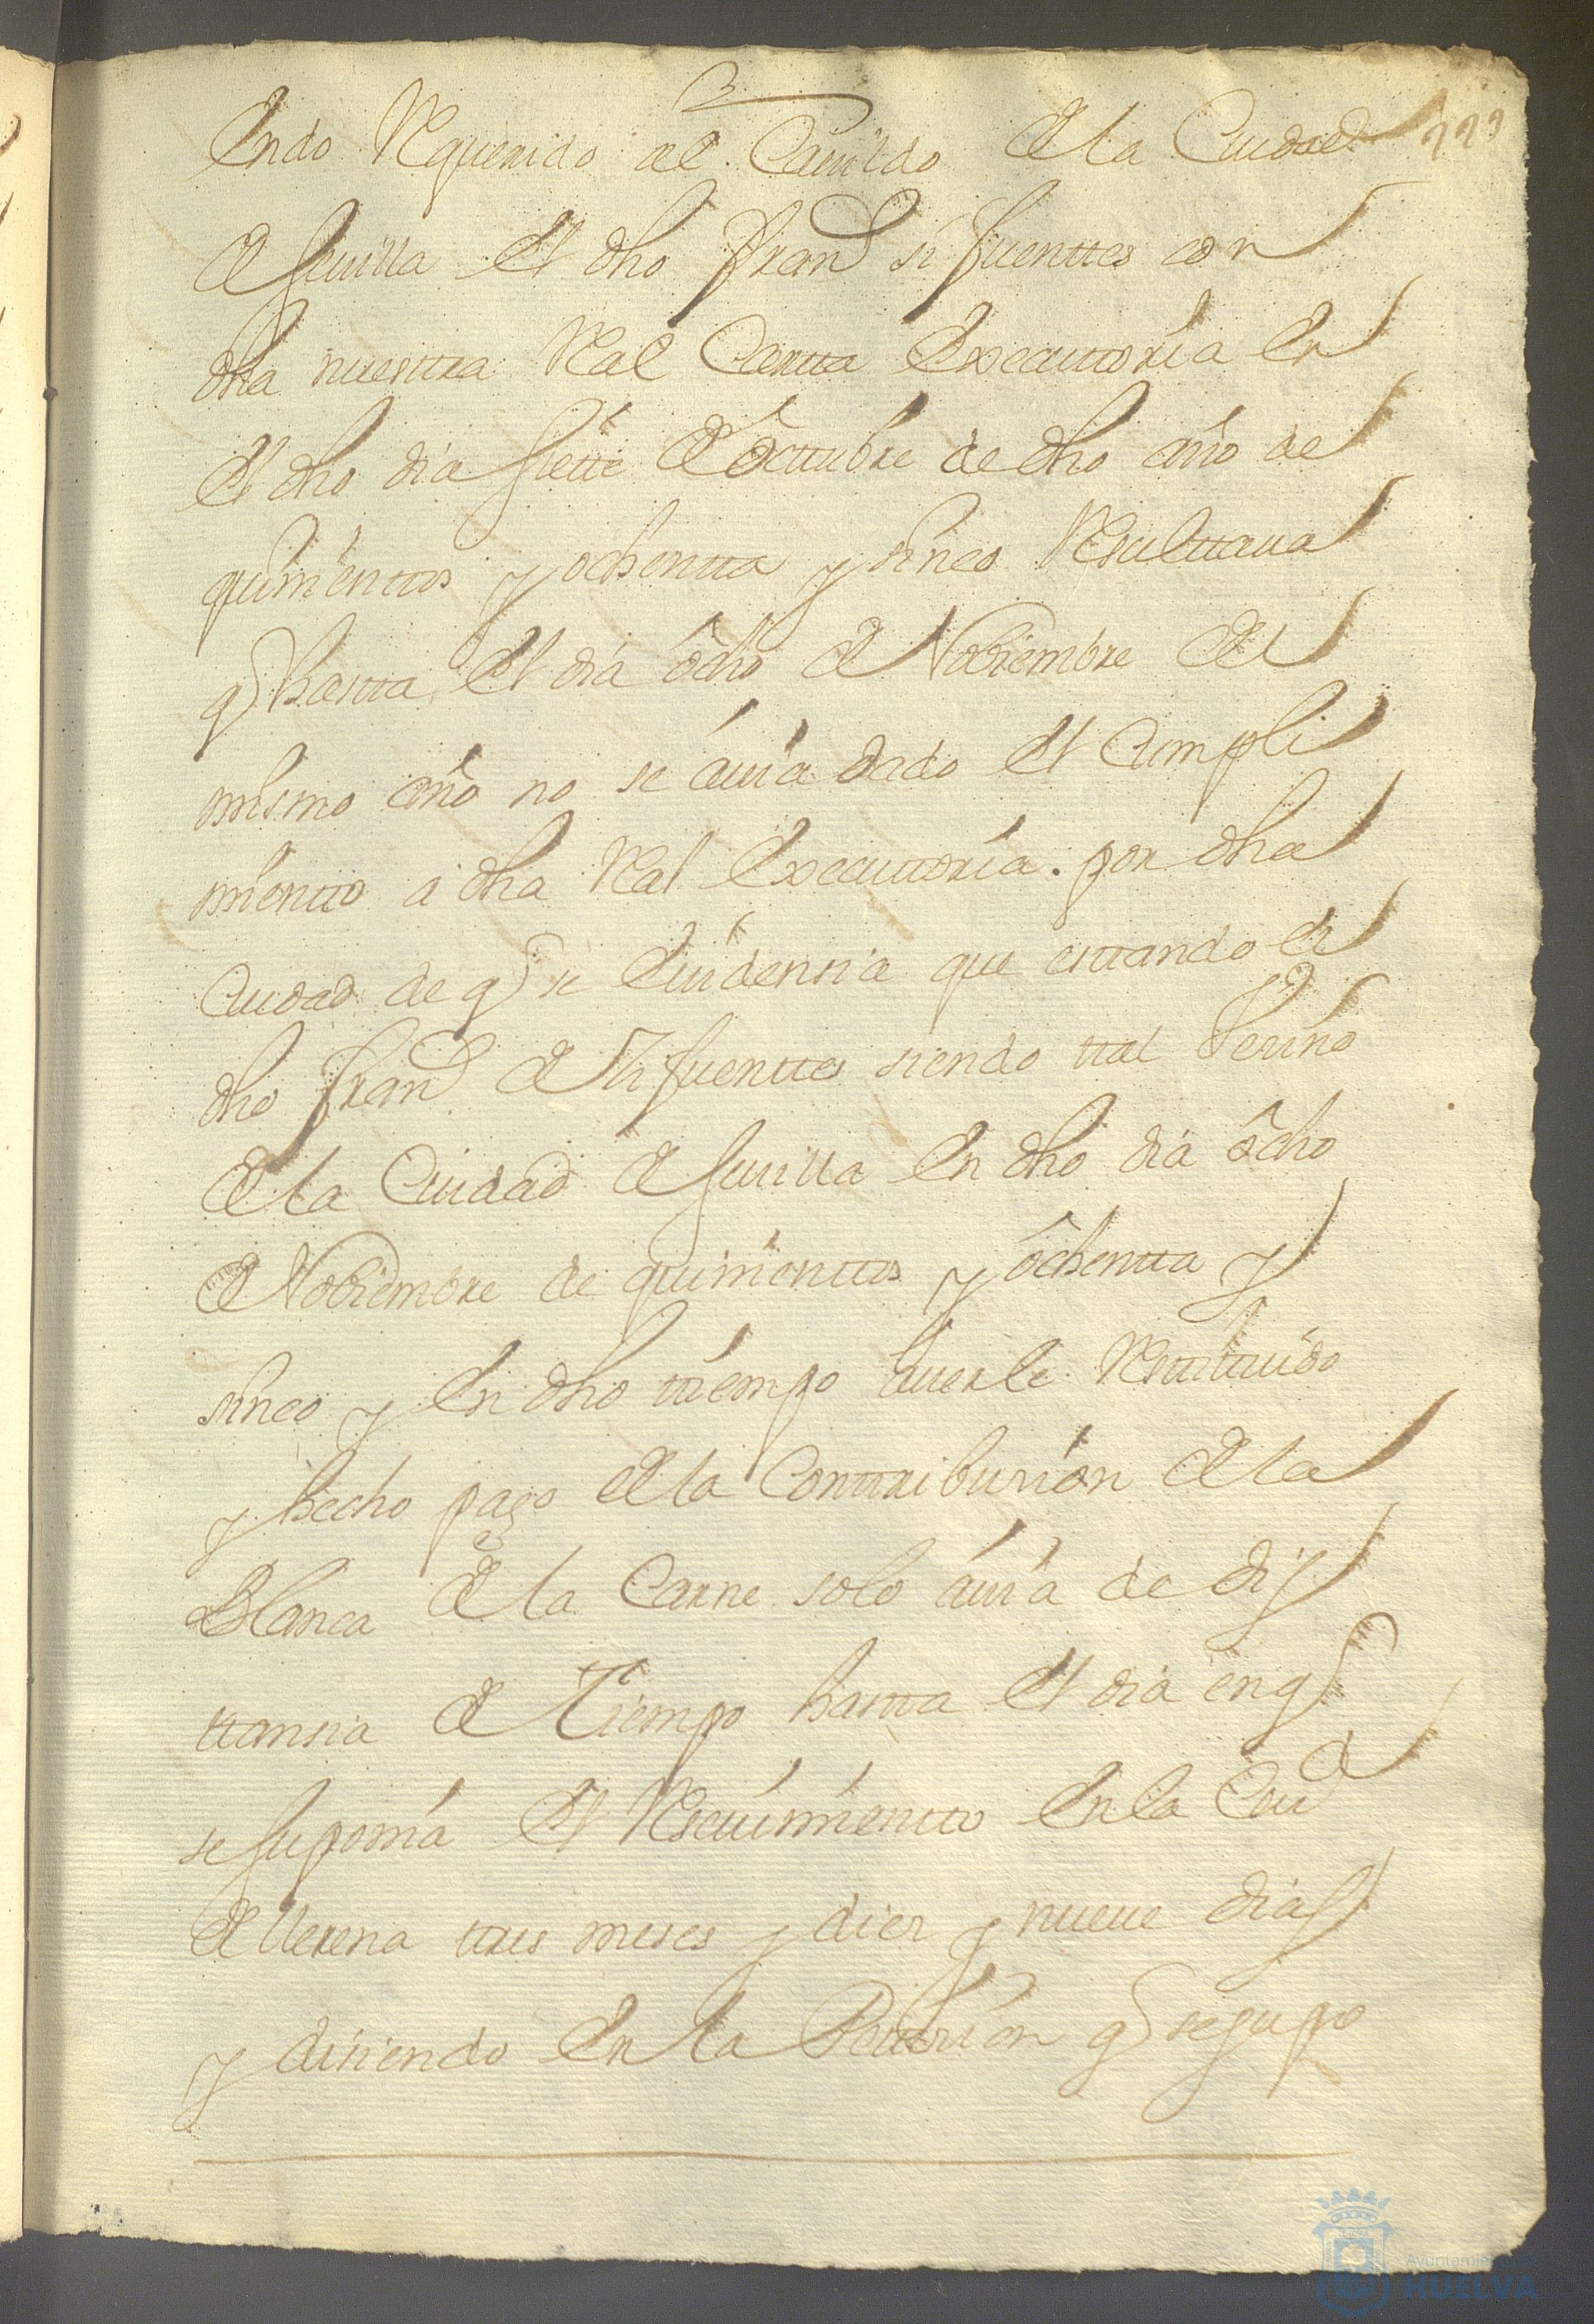 119
endo Requerido al Cauildo de la Ciudad
de seuilla el dho fran.co sifuenttes con
dha nuestra Real Cartta Executtoria en
el dho dia siette de octtubre de dho año de
quinienttos y ochentta y sinco Resulttaua
q hastta el dia ocho de Nobiembre del
mismo año no se auia dado el Cumpli
mientto a dha Real Executtoria. por dha
Ciudad de q se euidensia que esttando el
dho fran.co de sifuenttes siendo ttal Vezino
de la Ciudad de seuilla en dho dia ôcho
de Nobiembre de quinienttos y ôchentta y
sinco y en dho tiempo auerle Restituido
y hecho pago de la Conttribusion de la
Blanca de la Carne solo auia de dis
ttansia de Tiempo hastta el dia en q
se suponia el Resiuimientto en la Ciud
de llerena ttres meses y diez y nueue dias
y disiendo en la Petision q se supo
Ayuntamiento de
HUELVA